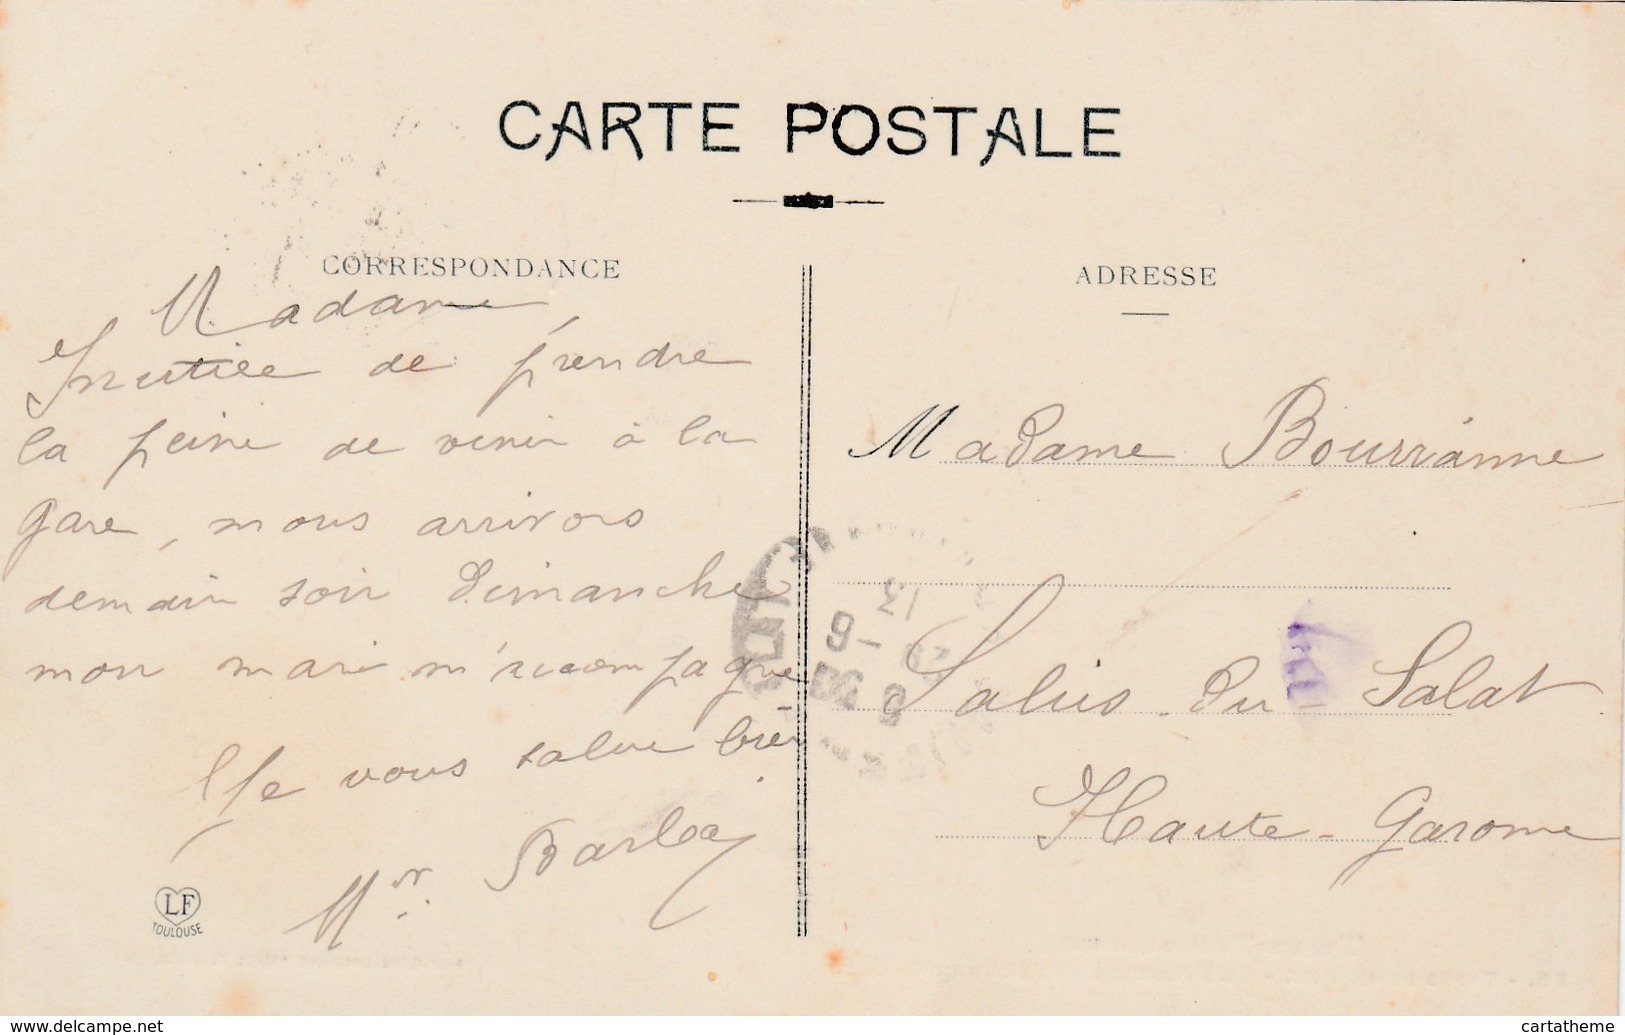 CARTE POSTALE
CORRESPONDANCE
Madame,
Inutile de prendre
la peine de venir à la
gare, nous arrivons
demain soir Dimanche
mon mari m'accompagne
Je vous salue bien
Mr
LF
TOULOUSE
ADRESSE
Madame Bourrianne
Salies-du-Salat
Haute-Garonne
13
6
www.delcampe.net
cartatheme